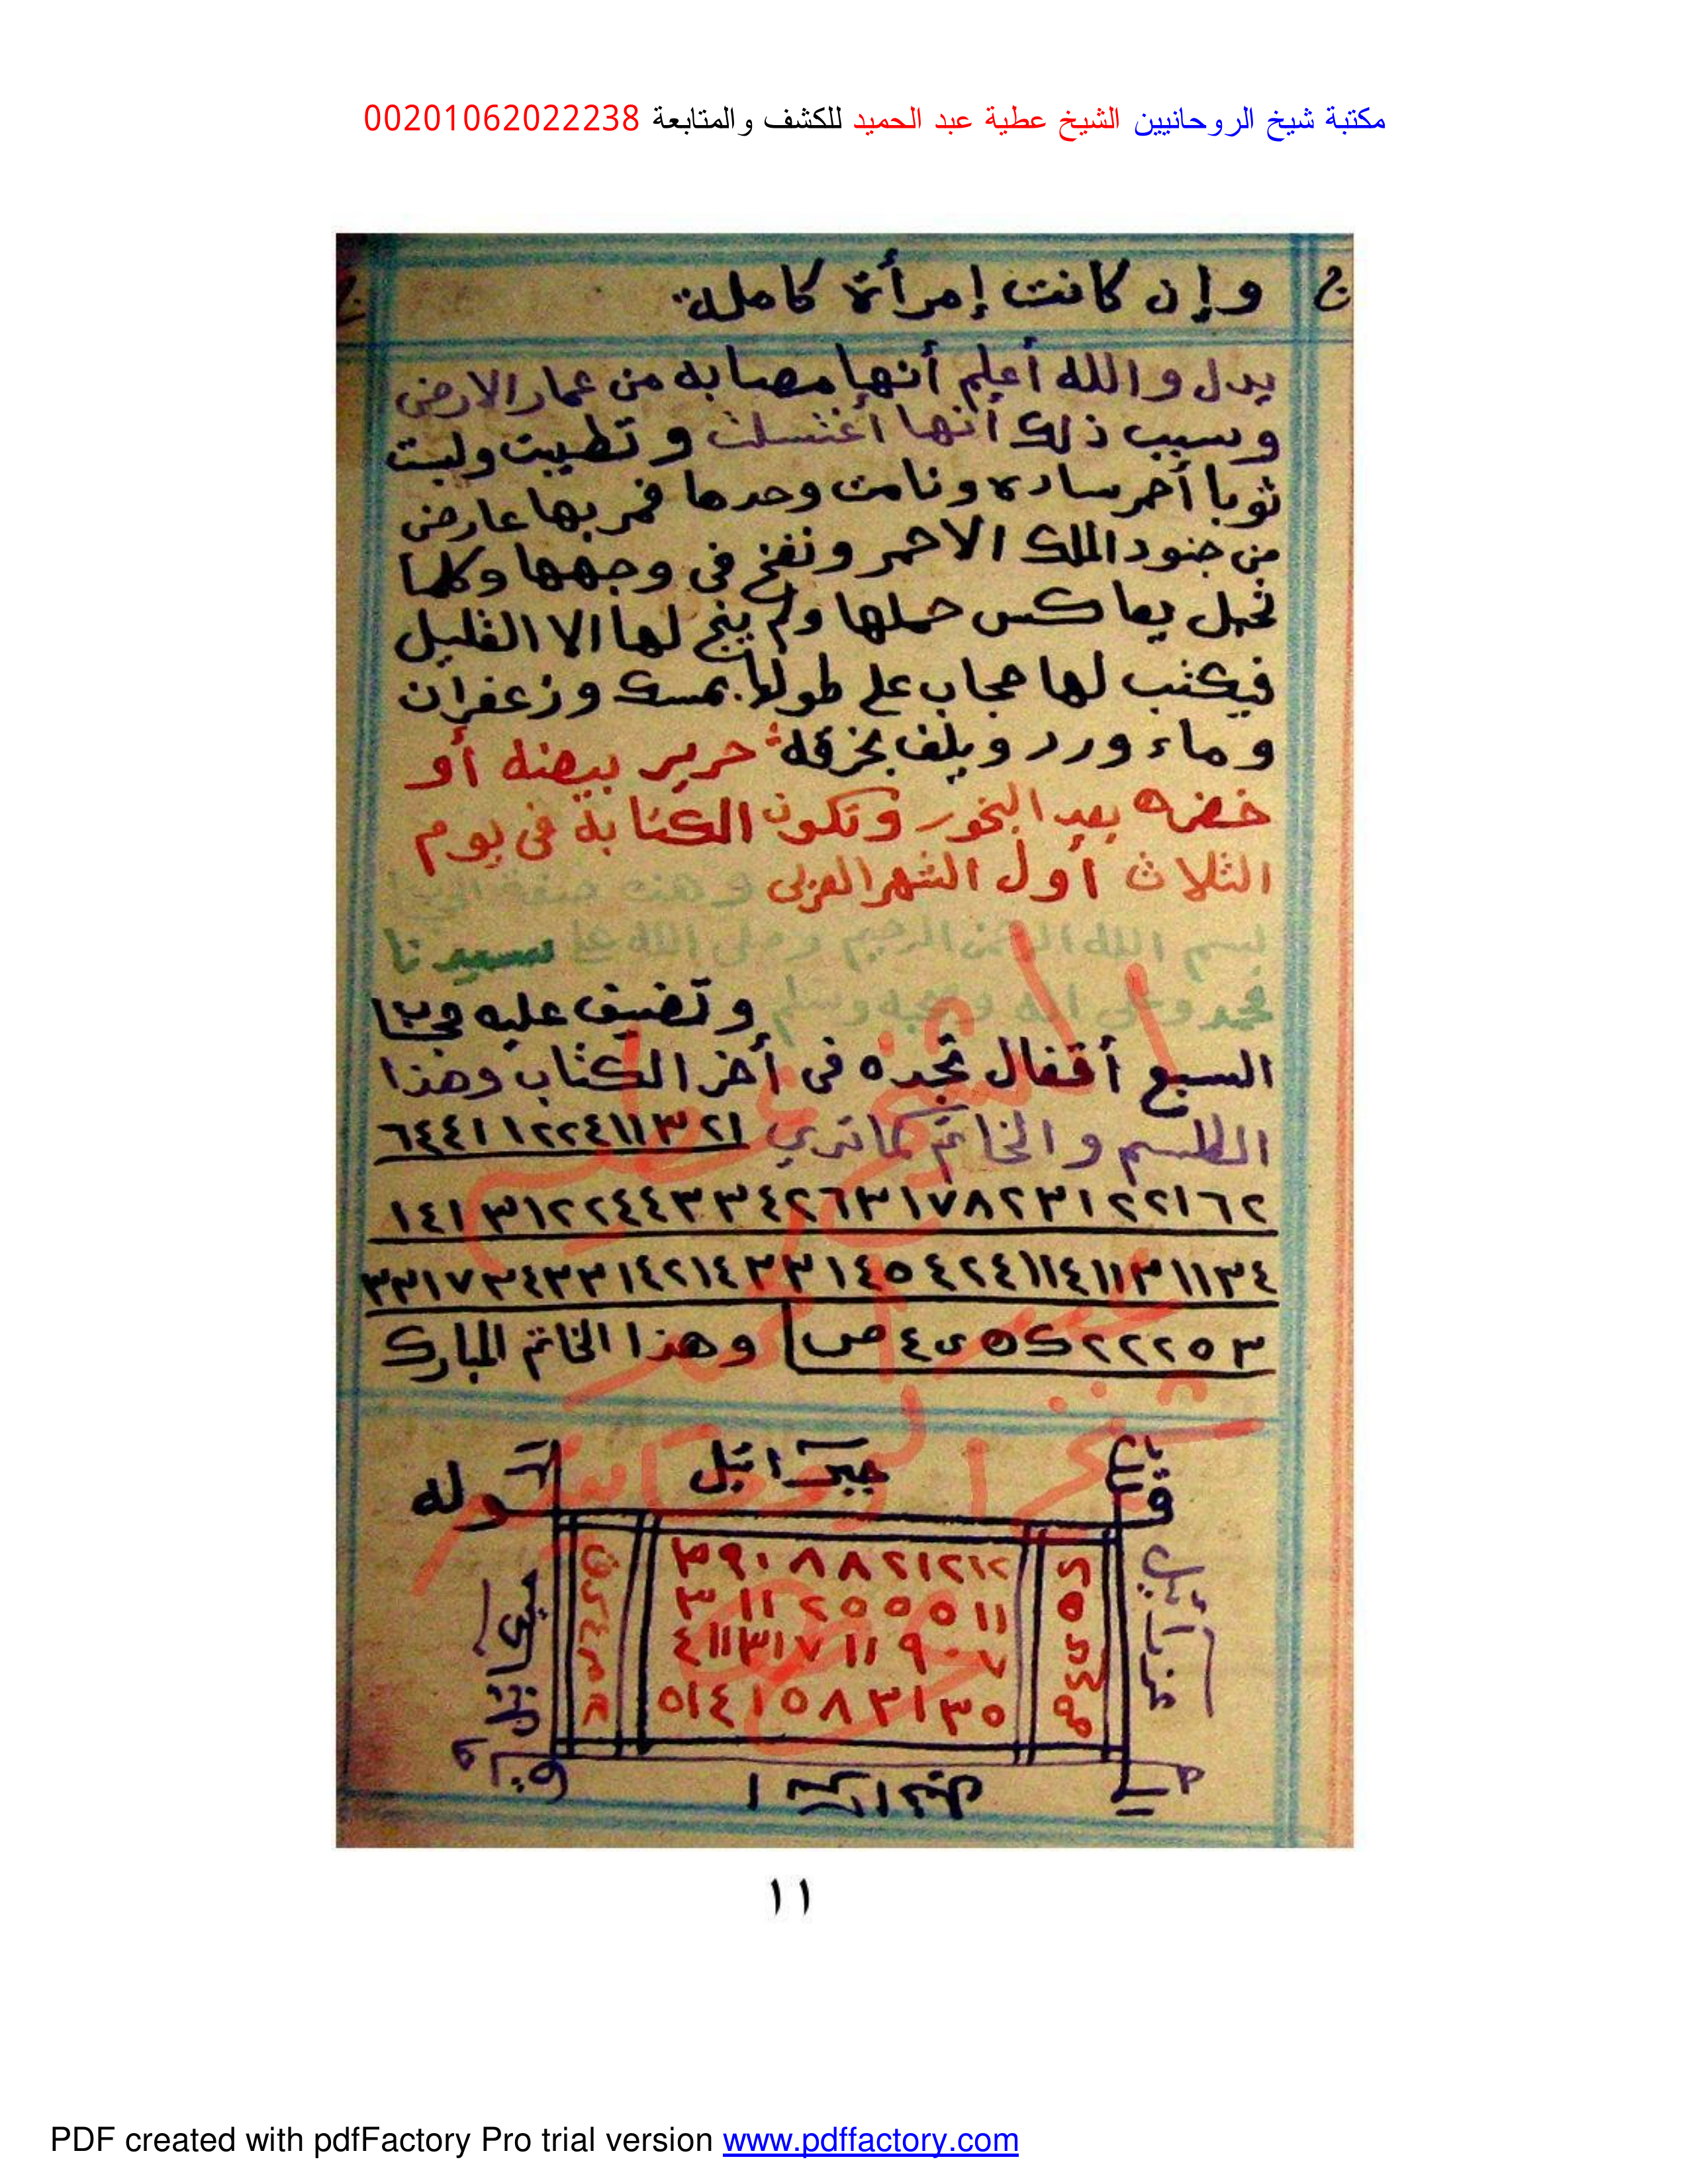 مكتبة شيخ الروحانيين الشيخ عطية عبد الحميد للكشف والمتابعة 00201062022238
وإن كانت إمرأة كاملة
يدل والله أعلم أنها مصابه من عمار الارض
وسبب ذلك أنها أغتسلت وتطيبت ولبست
ثوبا أحمر ساده ونامت وحدها فمر بها عارض
من جنود الملك الاحمر ونفخ في وجهها وكلما
تحبل يعاكس حملها ولم ينج لها الا القليل
فيكتب لها حجاب على طولها بمسك وزعفران
وماء ورد ويلف بخرقة حرير بيضه أو
خضره بعد البخور وتكون الكتابة في يوم
الثلاث أول الشهر العربي وهذه صفة
بسم الله الرحمن الرحيم وصلى الله على سيدنا
محمد وعلى اله وصحبه وسلم وتضيف عليه
السبع أقفال تجده في أخر الكتاب وهذا
الطلسم والخاتم كما تري ٦٤٤١١٢٢٤١١٣٢١
١٤١٣١٢٢٤٤٣٣٤٢٦٣١٧٨٢٣١٢٢١٦٢
٣٣١٧٣٤٣٣١٤٢١٤٣٣١٤٥٤٢٤١١٤١١٣١١٣٤
٣٥٢٢٢ ص وهذا الخاتم المبارك
قوله جبرائيل
وله
عزرائيل
٣٩٠٨٨٢١٢١٢
٣١١٢٥٥٥١١
٤١١٣١٧١١٩٠٧
٥١٤١٥٨٣١٣٥
١١
PDF created with pdfFactory Pro trial version www.pdffactory.com